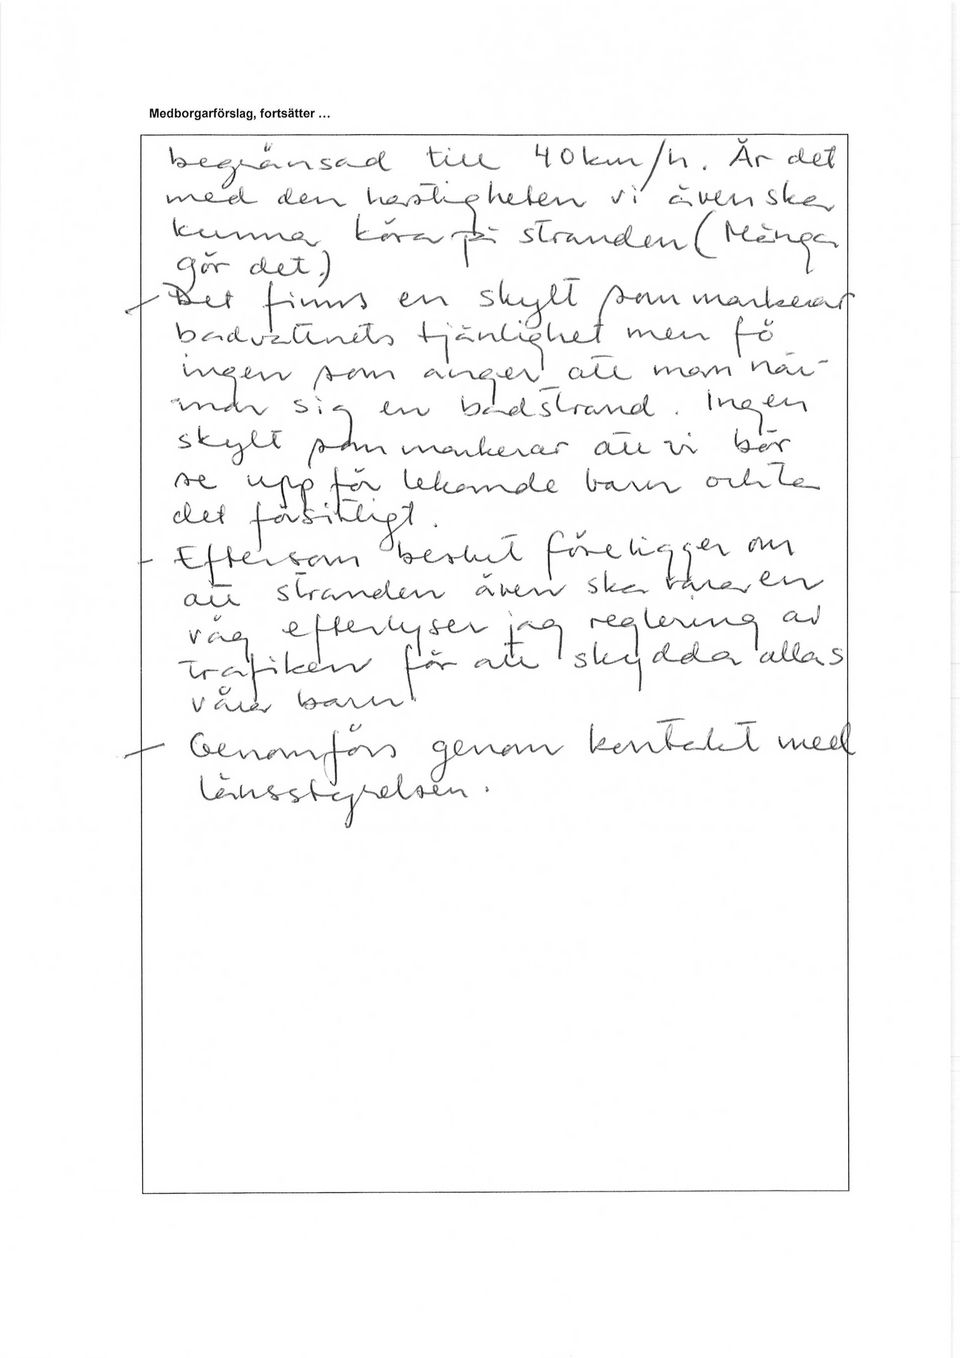 Medborgarförslag, fortsätter ...
begränsad till 40 km/h. Är det
med den hastigheten vi även ska
kunna köra på stranden (Många
gör det.)
- Det finns en skylt som markerar
badvattnets tjänlighet men fö
ingen som anger att man när-
mar sig en badstrand. Ingen
skylt som markerar att vi bör
se upp för lekande barn och ta
det försiktigt.
- Eftersom beslut föreligger om
att stranden även ska vara en
väg efterlyser jag reglering av
trafiken för att skydda allas
våra barn.
- Genomförs genom kontakt med
länsstyrelsen.